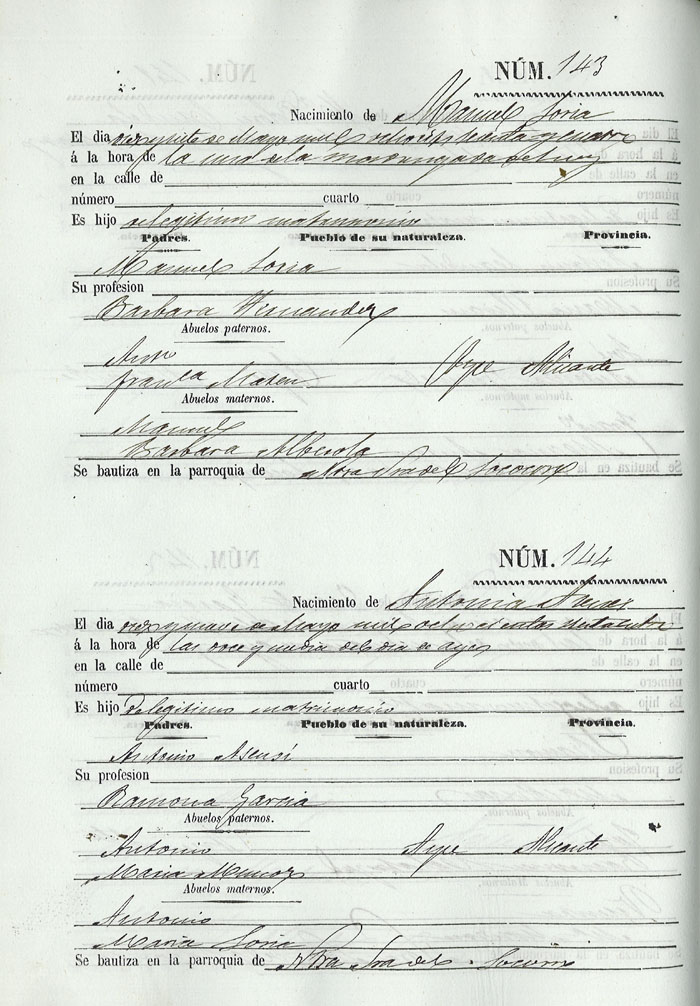 NÚM. 143
Nacimiento de Manuel Soria
El dia diez y siete de Mayo mil ochocientos setenta y cuatro
á la hora de la una de la madrugada de hoy
en la calle de
número cuarto
Es hijo de legitimo matrimonio
Padres. Pueblo de su naturaleza. Provincia.
Manuel Soria
Su profesion
Barbara Hernandez
Abuelos paternos.
Antº
Franca Mateu Aspe Alicante
Abuelos maternos.
Manuel
Barbara Alberola
Se bautiza en la parroquia de Ntra Sra del Socorro
NÚM. 144
Nacimiento de Antonia Asensi
El dia diez y nueve de Mayo mil ochocientos
á la hora de las once y media del dia de ayer
en la calle de
número cuarto
Es hijo de legitimo matrimonio
Padres. Pueblo de su naturaleza. Provincia.
Antonio Asensi
Su profesion
Ramona Garcia
Abuelos paternos.
Antonio Aspe Alicante
Maria Munoz
Abuelos maternos.
Antonio
Maria Soria
Se bautiza en la parroquia de Ntra Sra del Socorro